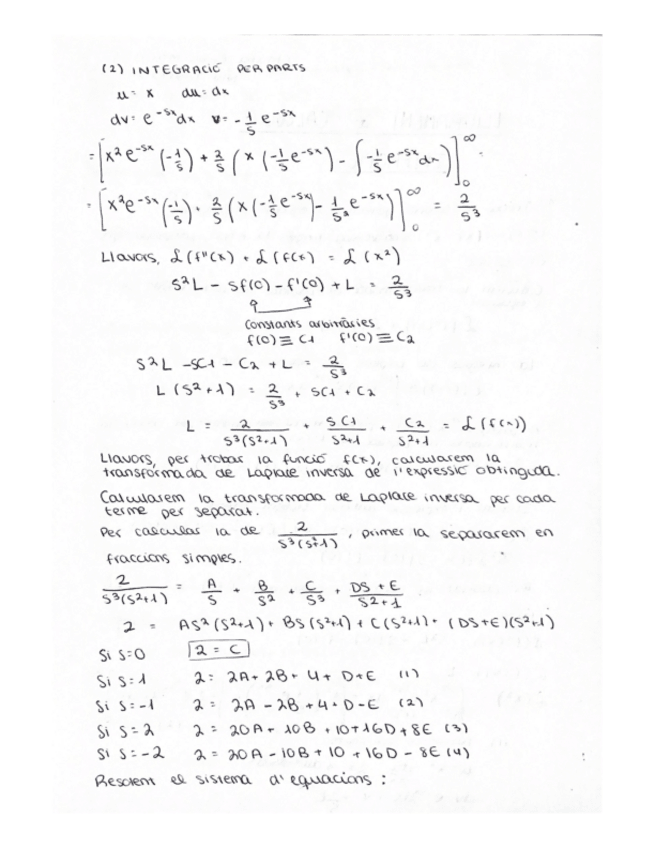 (2) INTEGRACIÓ PER PARTS
u = x   du = dx
dv = e^-sx dx   v = -1/s e^-sx
= [x² e^-sx (-1/s) + 2/s (x (-1/s e^-sx) - ∫ -1/s e^-sx dx)]₀^∞ =
= [x² e^-sx (-1/s) + 2/s (x (-1/s e^-sx) - 1/s² e^-sx)]₀^∞ = 2/s³
Llavors, ℒ(f''(x) + ℒ(f(x) = ℒ(x²)
s²L - sf(0) - f'(0) + L = 2/s³
constants arbitràries
f(0) ≡ C1   f'(0) ≡ C2
s²L - sC1 - C2 + L = 2/s³
L (s²+1) = 2/s³ + sC1 + C2
L = 2/s³(s²+1) + sC1/s²+1 + C2/s²+1 = ℒ(f(x))
Llavors, per trobar la funció f(x), calcularem la
transformada de Laplace inversa de l'expressió obtinguda.
Calcularem la transformada de Laplace inversa per cada
terme per separat.
Per calcular la de 2/s³(s²+1), primer la separarem en
fraccions simples.
2/s³(s²+1) = A/s + B/s² + C/s³ + Ds+E/s²+1
2 = As²(s²+1) + Bs(s²+1) + C(s²+1) + (Ds+E)(s²+1)
Si s=0   2 = C
Si s=1   2 = 2A + 2B + 4 + D+E   (1)
Si s=-1   2 = 2A - 2B + 4 + D-E   (2)
Si s=2   2 = 20A + 10B + 10 + 16D + 8E   (3)
Si s=-2   2 = 20A - 10B + 10 + 16D - 8E   (4)
Resolem el sistema d'equacions :